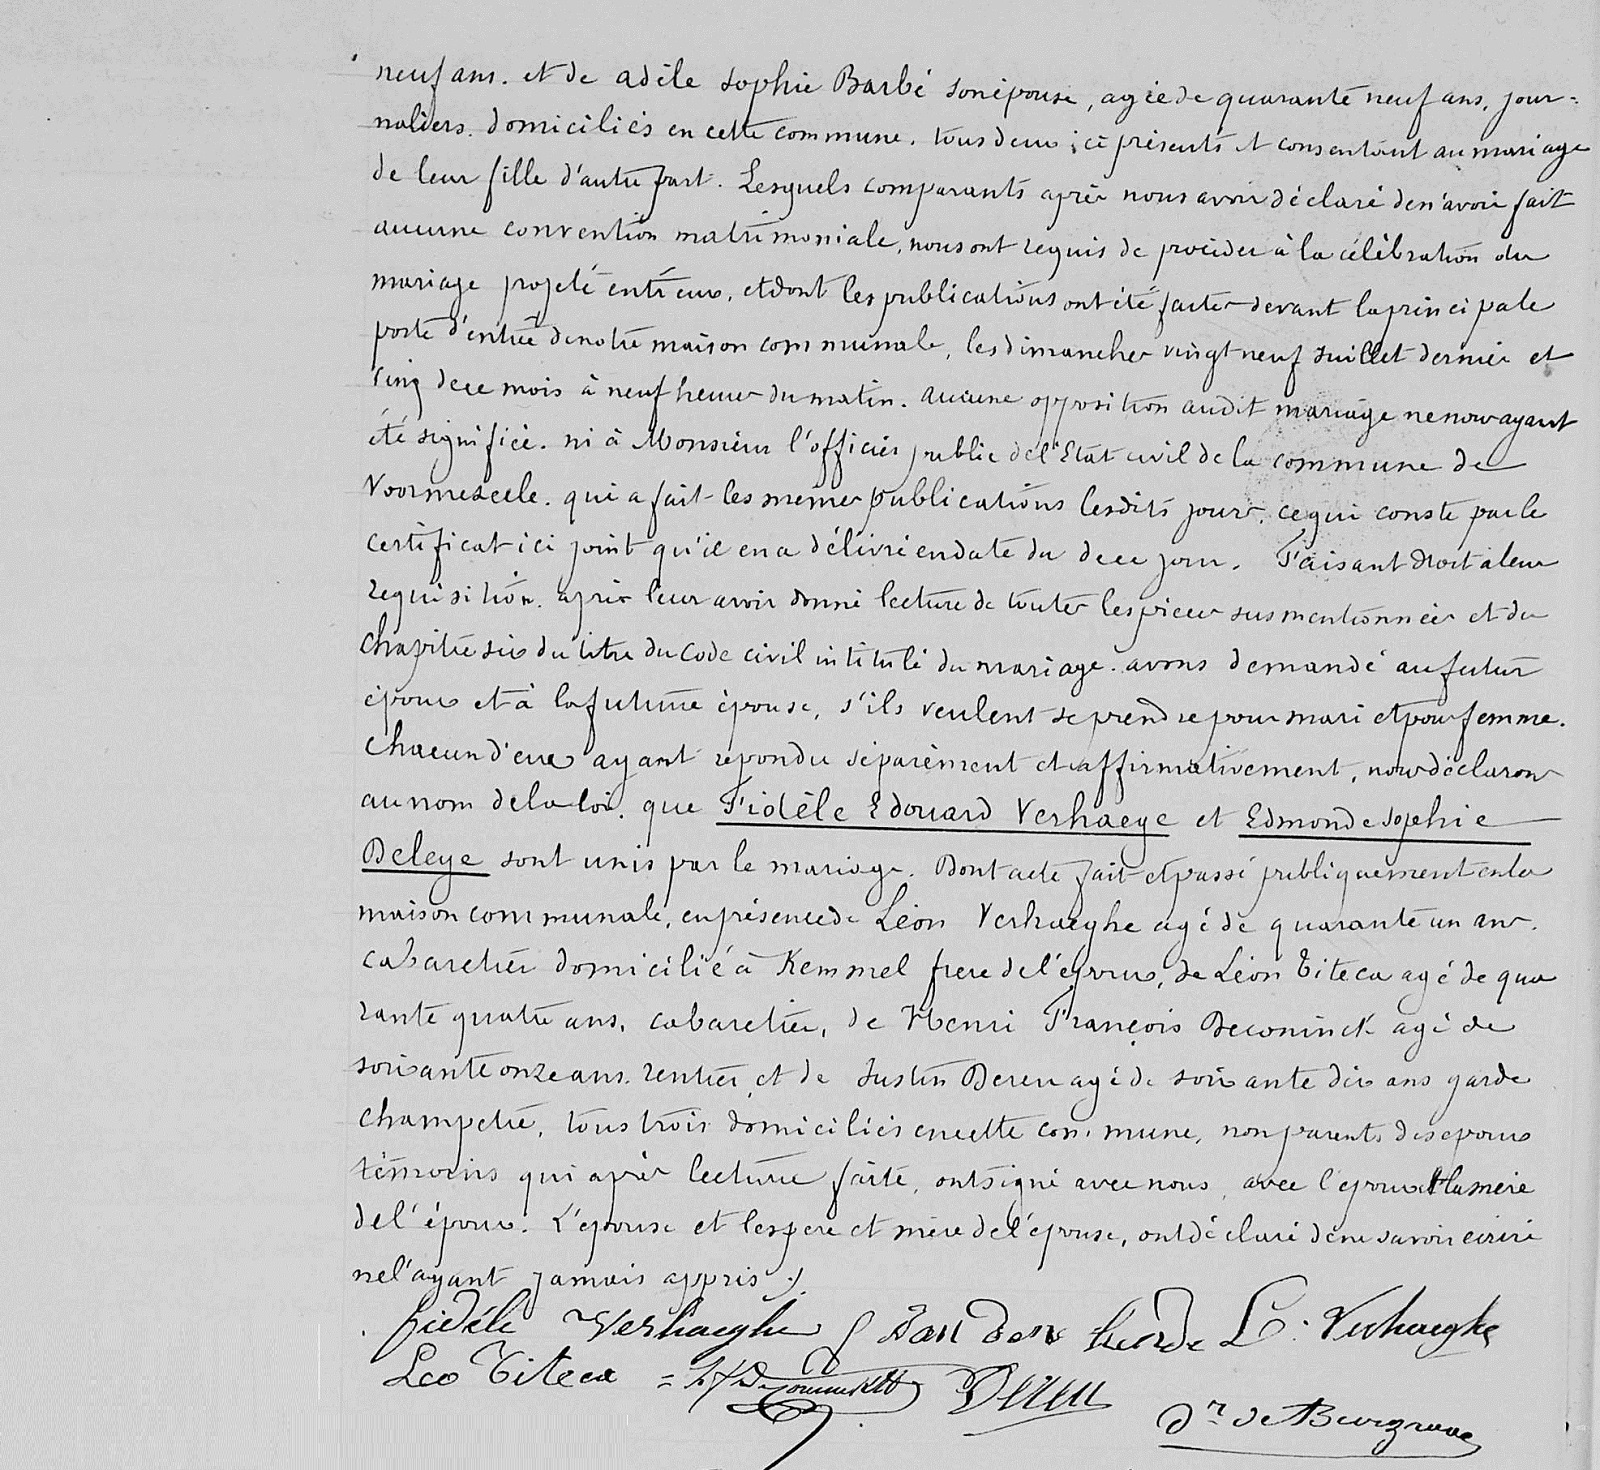 neuf ans. et de adèle sophie Barbé son épouse, agée de quarante neuf ans, jour-
naliers. domiciliés en cette commune. tous deux ici présents et consentant au mariage
de leur fille d'autre part. Lesquels comparants après nous avoir déclaré de n'avoir fait
aucune convention matrimoniale, nous ont requis de procéder à la célébration du
mariage projeté entr'eux, et dont les publications ont été faites devant la principale
porte d'entrée de notre maison communale, les dimanches vingt neuf Juillet dernier et
cinq de ce mois à neuf heures du matin. aucune opposition audit mariage ne nous ayant
été signifiée. ni à Monsieur l'officier public de l'Etat civil de la commune de
Voormezeele. qui a fait les mêmes publications lesdits jours. ce qui conste par le
certificat ici joint qu'il en a délivré en date du de ce jour. Faisant droit à leur
requisition. après leur avoir donné lecture de toutes les pièces susmentionnées et du
chapitre six du titre du Code civil intitulé du mariage. avons demandé au futur
époux et à la future épouse, s'ils veulent se prendre pour mari et pour femme.
chacun d'eux ayant repondu séparément et affirmativement, nous déclarons
au nom de la loi. que Fidèle Edouard Verhaege et Edmonde Sophie
Deleye sont unis par le mariage. Dont acte fait et passé publiquement en la
maison communale, en présence de Léon Verhaeghe agé de quarante un ans.
cabaretier domicilié à Kemmel frere de l'époux, de Léon Titeca agé de qua
rante quatre ans, cabaretier, de Henri François Deconinck agé de
soixante onze ans. rentier, et de Justin Dereu agé de soixante dix ans garde
champetre, tous trois domiciliés en cette commune, non parents des epoux
témoins qui après lecture faite, ont signé avec nous, avec l'epoux et la mère
de l'époux. L'épouse et les pere et mère de l'épouse, ont déclaré de ne savoir écrire
ne l'ayant jamais appris /.
fidéle Verhaeghe Van den L. Verhaeghe
Leo Titeca = Dereu
Dr de Burgrave